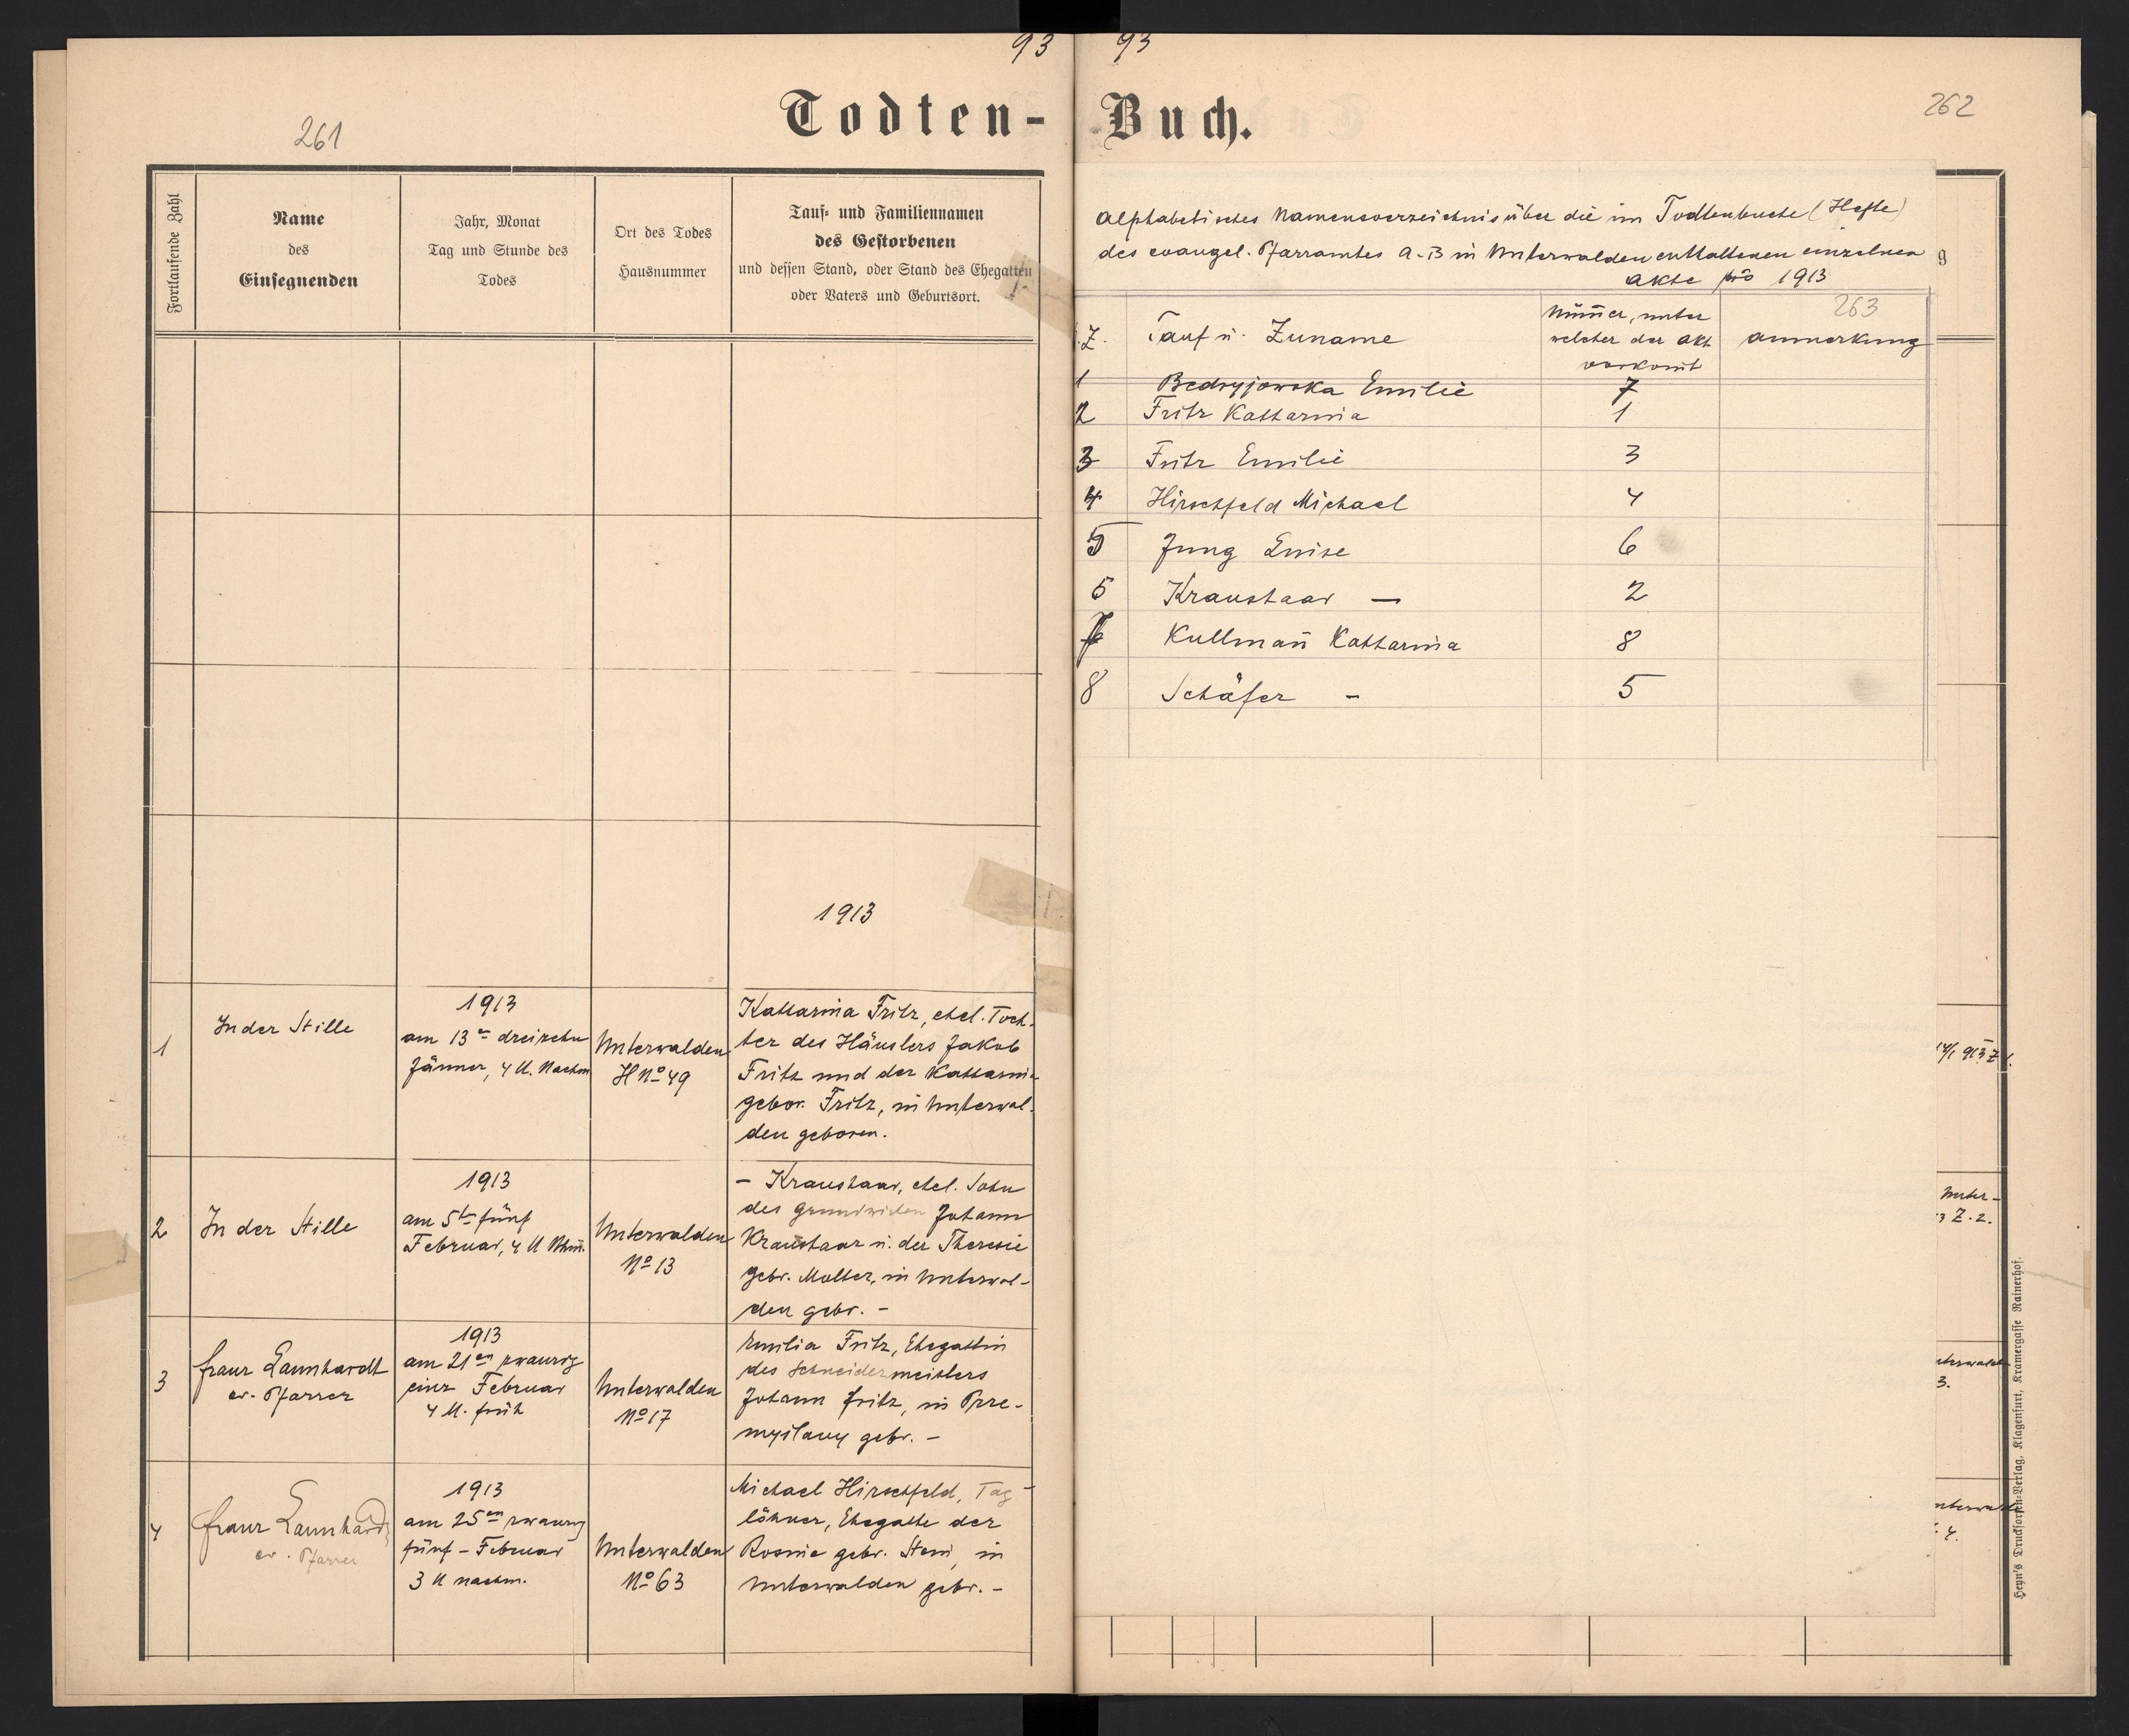 93
93
261
262
Todten-
Buch.
Fortlaufende Zahl
Name
des
Einsegnenden
Jahr, Monat
Tag und Stunde des
Todes
Ort des Todes
Hausnummer
Tauf- und Familiennamen
des Gestorbenen
und dessen Stand, oder Stand des Ehegatten
oder Vaters und Geburtsort.
1913
1
In der Stille
1913
am 13n dreizehn
Jänner, 4 U. Nachm
Unterwalden
HNo 49
Katharina Fritz, ehel. Toch-
ter des Häuslers Jakob
Fritz und der Katharina
gebor. Fritz, in Unterwal-
den geboren.
2
In der Stille
1913
am 5ten fünf
Februar, 4 U Nhm.
Unterwalden
No 13
- Kraushaar, ehel. Sohn
des Grundwirten Johann
Kraushaar u. der Theresie
gebr. Molter, in Unterwal-
den gebr. -
3
Franz Launhardt
ev. Pfarrer
1913
am 21en zwanzig
einz Februar
4 U. früh
Unterwalden
No 17
Emilia Fritz, Ehegattin
des Schneidermeisters
Johann Fritz, in Prze-
myslany gebr. -
4
Franz Launhardt
ev. Pfarrer
1913
am 25en zwanzig
fünf - Februar
3 U nachm.
Unterwalden
No 63
Michael Hirschfeld, Tag-
löhner, Ehegatte der
Rosine gebr. in
Unterwalden gebr. -
Alphabetisches Namensverzeichnis über die im Todtenbuche (Hefte)
des evangel. Pfarramtes A.B in Unterwalden enthaltenen einzelnen
Akte pro 1913
263
Z. Tauf u. Zuname
Num̄er, unter
welcher der Akt
vorkom̄t
Anmerkung
1 Bedryjowska Emilie 7
2 Fritz Katharina 1
3 Fritz Emilie 3
4 Hirschfeld Michael 4
5 Jung Luise 6
6 Kraushaar — 2
7 Kullman̄ Katharina 8
8 Schäfer - 5
g
14/1 913 Z 1.
Unter-
3 Z. 2.
nterwald
3.
nterwald
. 4.
Heyn's Drucksorten-Verlag, Klagenfurt, Kramergasse Rainerhof.